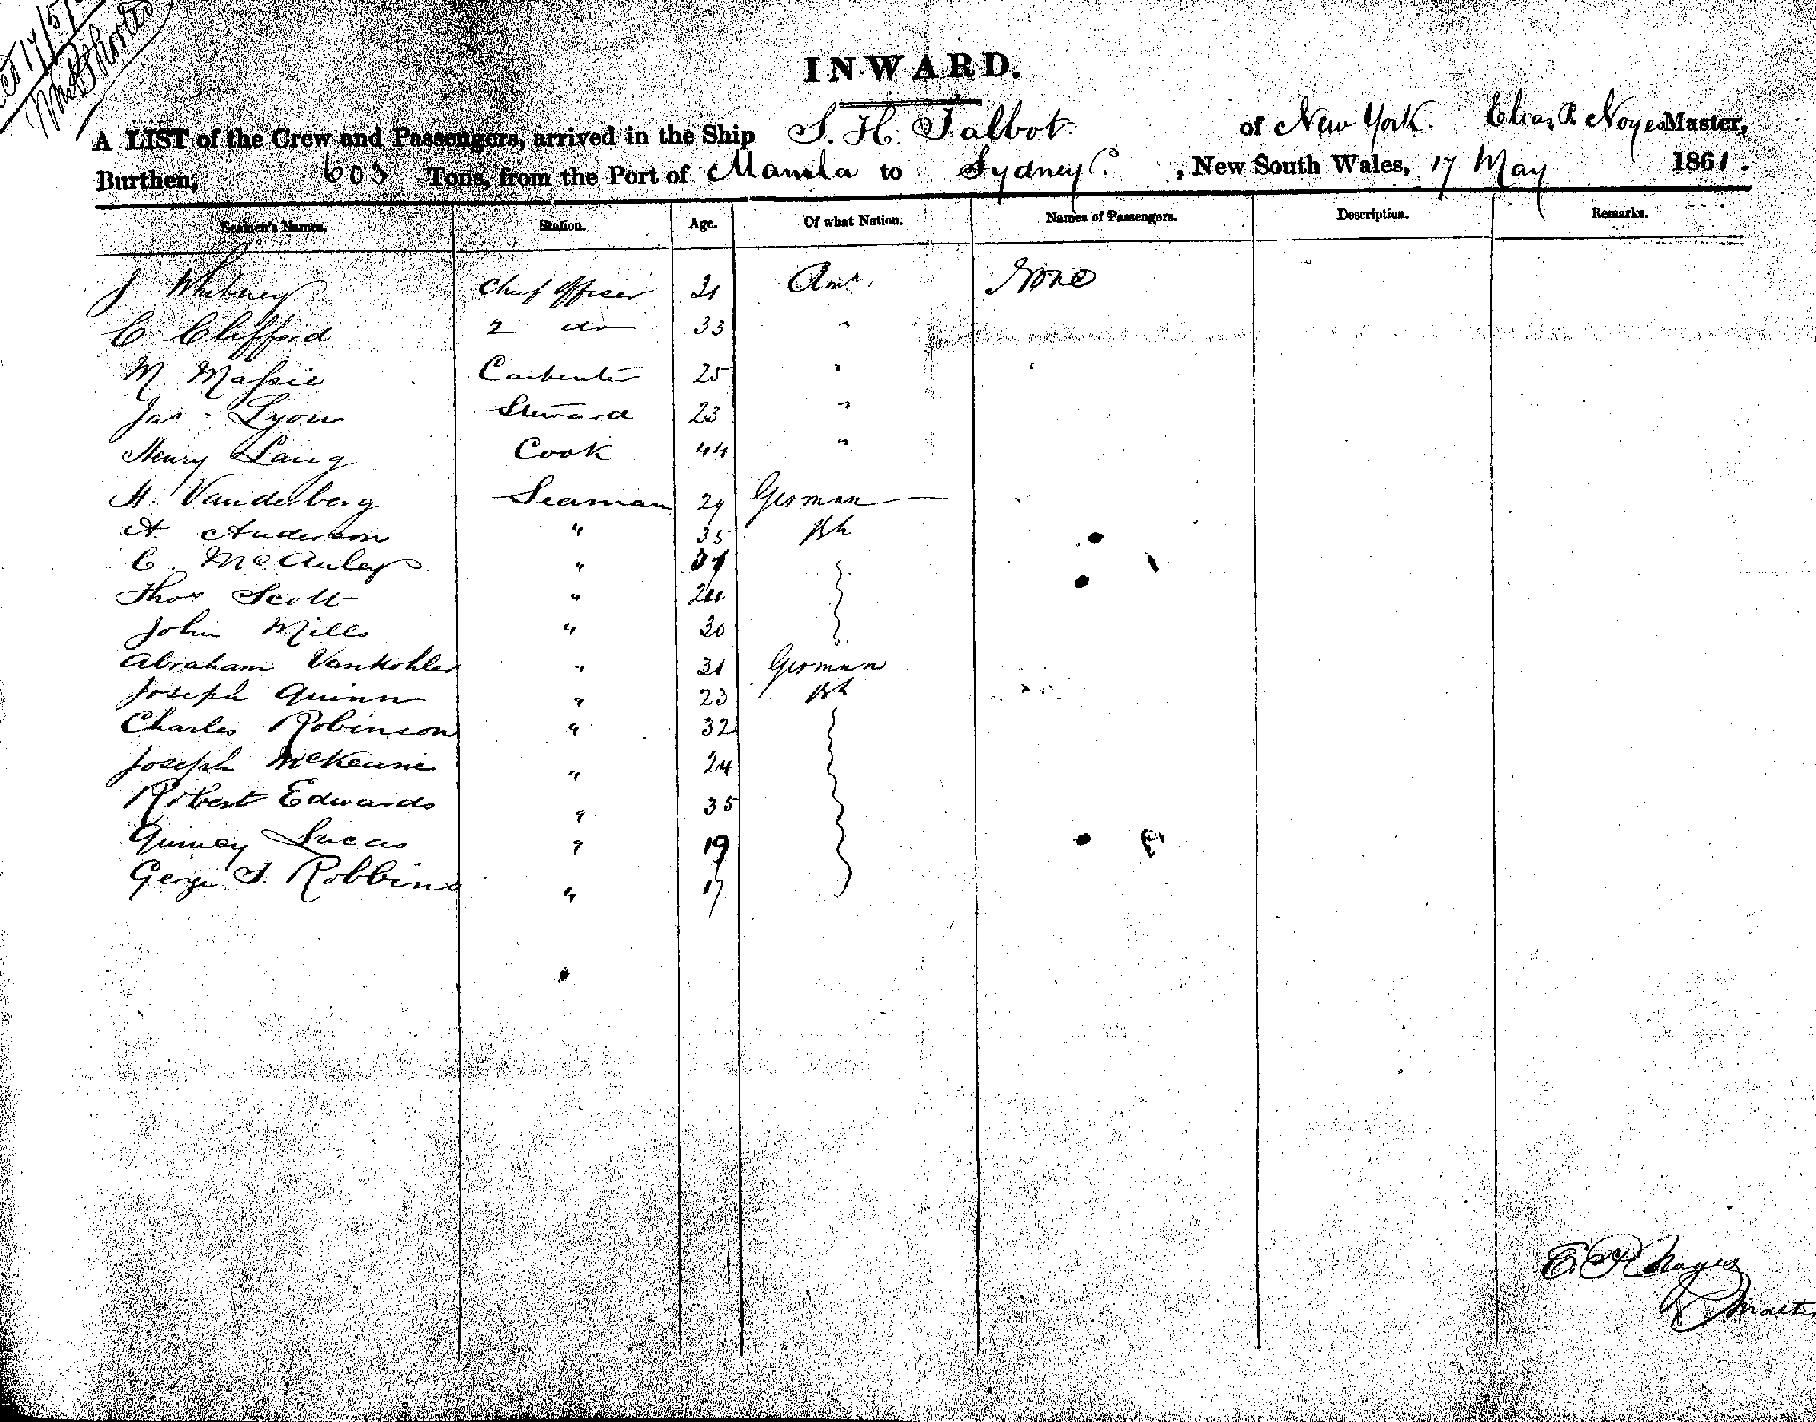 17/5/
INWARD.
A LIST of the Crew and Passengers, arrived in the Ship S. H. Talbot of New York. Elias P. Noyes Master,
Burthen, 603 Tons, from the Port of Manila to Sydney, New South Wales, 17 May 1861.
Seamen's Names. Station. Age. Of what Nation. Names of Passengers. Description. Remarks.
J Whitney Chief Officer 21 Amn. None
C Clifford 2 do 33 "
M Massie Carpenter 25 "
Jas Lyons Steward 23 "
Henry Lang Cook 44 "
H. Vanderberg Seaman 29 German
A. Anderson " 35 Bh
C. McAuley "
Thos Scott "
John Mills " 30
Abraham Vankohler " 31 German
Joseph Quinn " 23 Bh
Charles Robinson " 32
Joseph McKennie " 24
Robert Edwards " 35
Lucas " 19
George S. Robbins " 17
E. P. Noyes
Master